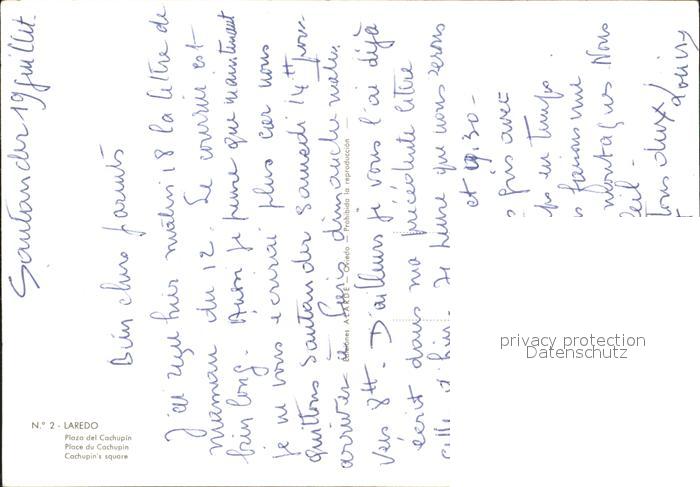 Santander 19 juillet.
Bien chers parents
J'ai reçu hier matin 18 la lettre de
maman du 12. Le courrier est
bien long. Aussi je pense que maintenant
je ne vous écrirai plus car nous
quittons Santander samedi 24 pour
arriver à Paris dimanche matin
vers 8H. D'ailleurs je vous l'ai déjà
écrit dans ma précédente lettre
celle d'hier. Je pense que nous serons
et 19.30-
avec
en temps.
faisons une
montagnes Nous
tous deux
Louisy
N.° 2 - LAREDO
Plaza del Cachupín
Place du Cachupin
Cachupin's square
Ediciones ALARDE — Oviedo — Prohibida la reproducción
privacy protection
Datenschutz